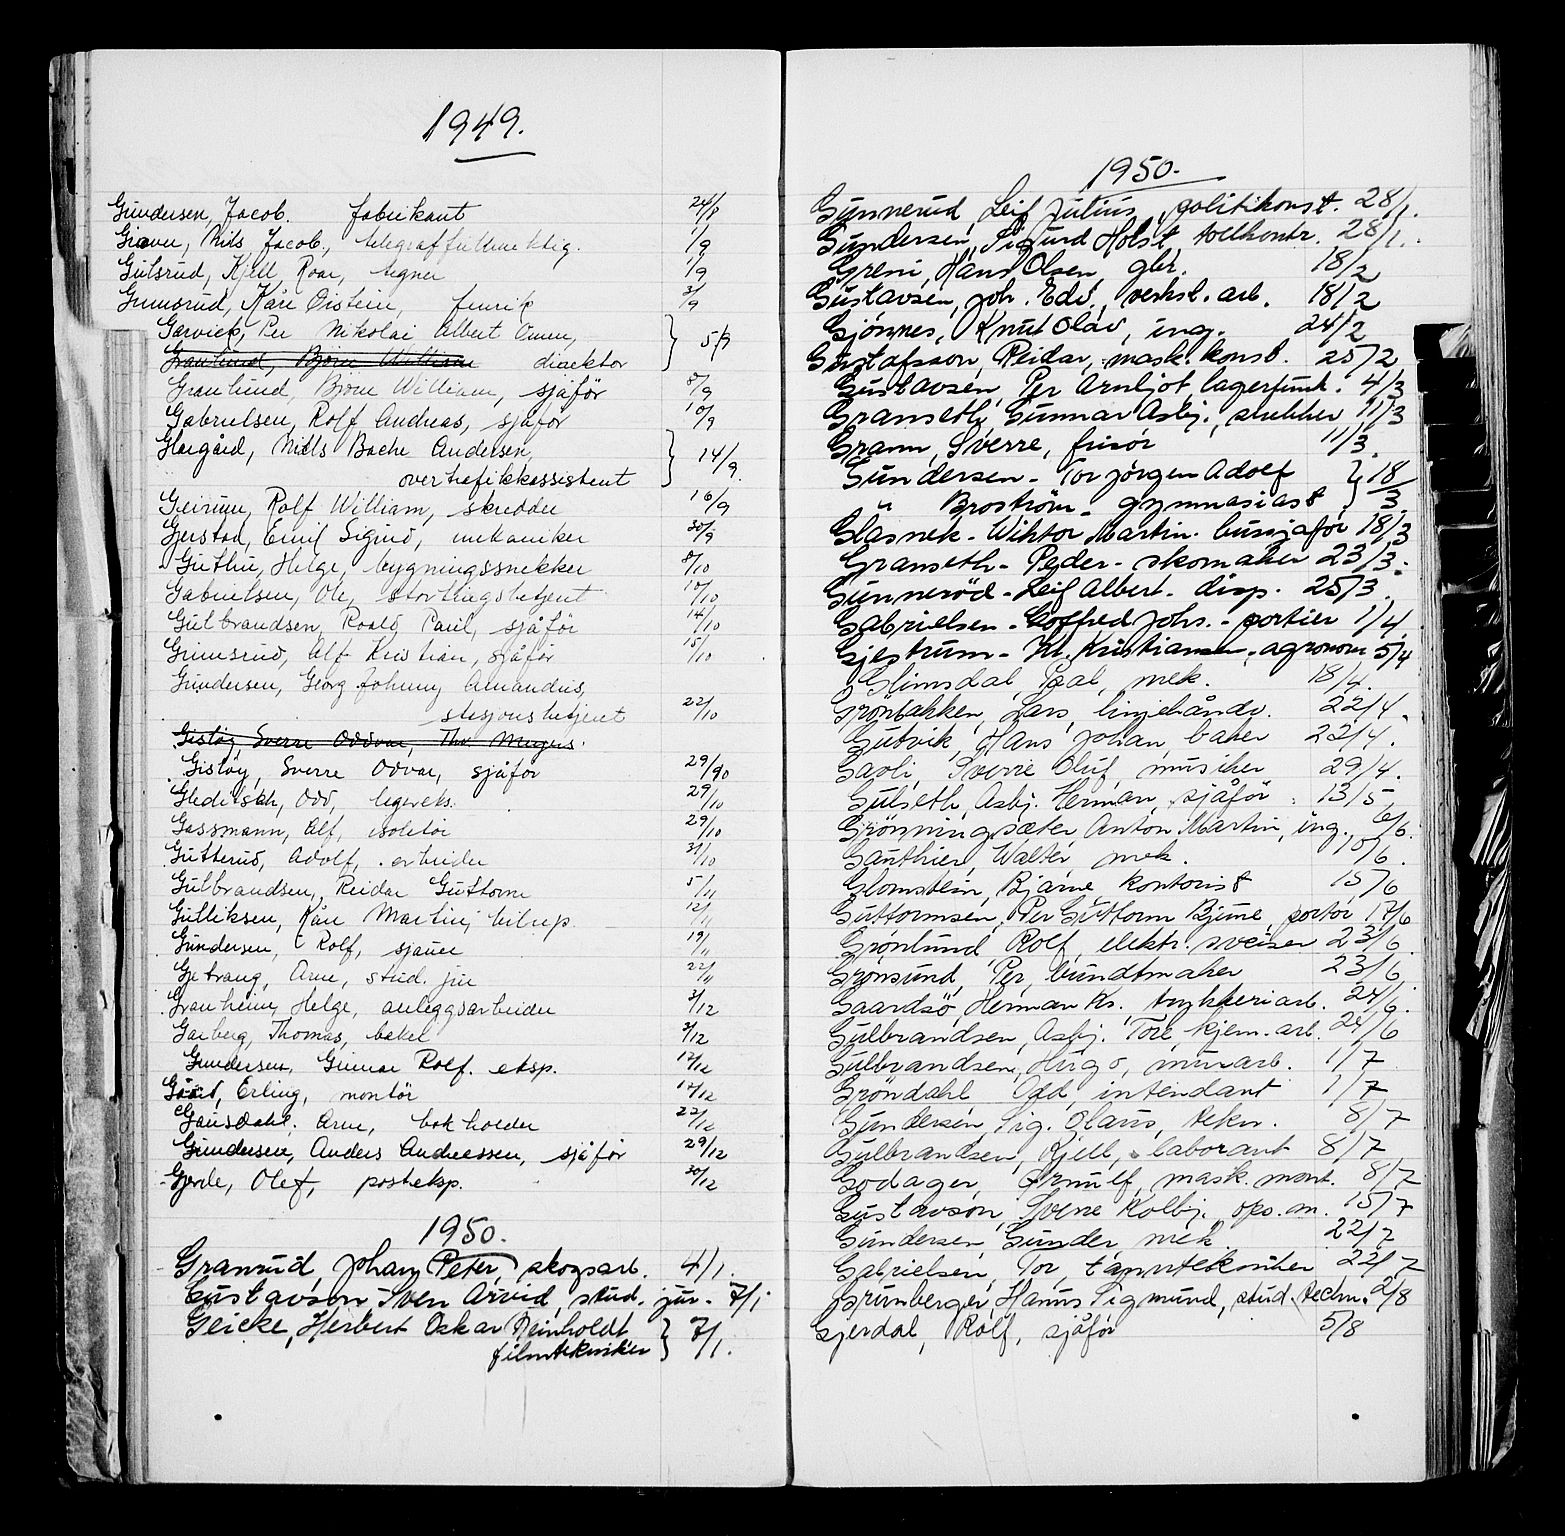 1949.
Gundersen, Jacob. fabrikant 24/8
Giæver, Nils Jacob, telegraffullmektig. 1/9
Gulsrud, Kjell Roar, tegner 1/9
Gumsrud, Kåre Øistein, fenrik 3/9
Garvick, Per Nikolai Albert Omun,
Granlund, Bjørn William direktor } 5/9
Granlund, Bjørn William, sjåfør 8/9
Gabrielsen, Rolf Andreas, sjåfør 10/9
Glasgård, Nills Bache Andersen,
overtrafikkassistent } 14/9.
Geirun, Rolf William, skredder 16/9
Gjerstad, Emil Sigurd, mekaniker 30/9
Guthu, Helge, bygningssnekker 8/10
Gabrielsen, Ole, stortingsbetjent 10/10
Gulbrandsen, Roald Paul, sjåfør 14/10
Grimsrud, Alf Kristian, sjåfør 15/10
Gundersen, Georg Johnny Amandus,
stasjonsbetjent 22/10
Gisløy, Sverre Oddvar, Thv. Meyers.
Gisløy, Sverre Odvar, sjåfør 29/10
Gleditsch, Odd, legevit. 29/10
Gassmann, Alf, isolatør 29/10
Gutterud, Adolf, arbeider 31/10
Gulbrandsen, Reidar Guttorm 5/11
Gulliksen, Kåre Martin, bilrep. 12/11
Gundersen, Rolf, sjauer 19/11
Getrang, Arne, stud. jur 22/11
Granheim, Helge, anleggsarbeider 3/12
Garberg, Thomas, baker 3/12
Gundersen, Gunnar Rolf. eksp. 12/12
Gaard, Erling, montør 17/12
Gausdahl, Arne, bokholder 22/12
Gundersen, Anders Andreassen, sjåfør 29/12
Gjerde, Olef, posteksp. 30/12
1950.
Granrud, Johan Peter, skogsarb. 4/1.
Gustavson, Sven Arvid, stud. jur. 7/1
Geicke, Herbert Oskar Reinholdt,
filmtekniker } 7/1.
1950.
Gunnerud, Leif Julius, politikonst. 28/1.
Gundersen, Sigurd Holst, tollkontr. 28/1.
Greni, Hans Olsen, gbr. 18/2
Gustavsen, Joh. Edv., verkst. arb. 18/2
Gjønnes, Knut Olav, ing. 24/2
Gustafsson, Reidar, mask. konst. 25/2
Gustavsen, Per Arnljot, lagerfunk. 4/3
Granseth, Gunnar Asbj., snekker 11/3
Grann, Sverre, frisør 11/3.
Gundersen - Tor Jörgen Adolf
" Broström - gymnasiast } 18/3.
Glasnek - Wiktor Martin - bussjåför 18/3
Granseth - Peder - skomaker 23/3.
Gunneröd - Leif Albert. disp. 25/3.
Gabrielsen - Gotfred Johs. - portier 1/4.
Gjestrum - Kr. Kristiansen - agronom 5/4
Glimsdal, Paal, mek. 18/4.
Grönbakken, Lars, linjehåndv. 22/4.
Gutvik, Hans Johan, baker 22/4.
Gavli, Sverre Oluf, musiker 29/4.
Gulseth, Asbj. Herman, sjåför 13/5
Grönningsæter, Anton Martin, ing., 6/6.
Gauthier, Walter, mek. 10/6.
Glomstein, Bjarne, kontorist 15/6
Guttormsen, Per Guttorm Bjune, portør 17/6
Grönlund, Rolf, elektr. sveiser 23/6
Grønsund, Per, bundtmaker 23/6
Gaardsö, Herman Kr., trykkeriarb. 24/6.
Gulbrandsen, Asbj. Tore, kjem. arb. 24/6
Gulbrandsen, Hugo, murarb. 1/7
Gröndahl Odd, intendant 1/7
Gundersen, Sig. Olaus, tekn. 8/7
Gulbrandsen, Kjell, laborant 8/7
Godager, Arnulf, mask. mont. 8/7
Gustavson, Sverre Kolbj. ops. m. 15/7
Gundersen, Gunder, mek. 22/7
Gabrielsen, Tor, tanntekniker 22/7
Grünberger, Hanns Sigmund, stud. techn. 2/8
Gjerdal, Rolf, sjåför 5/8